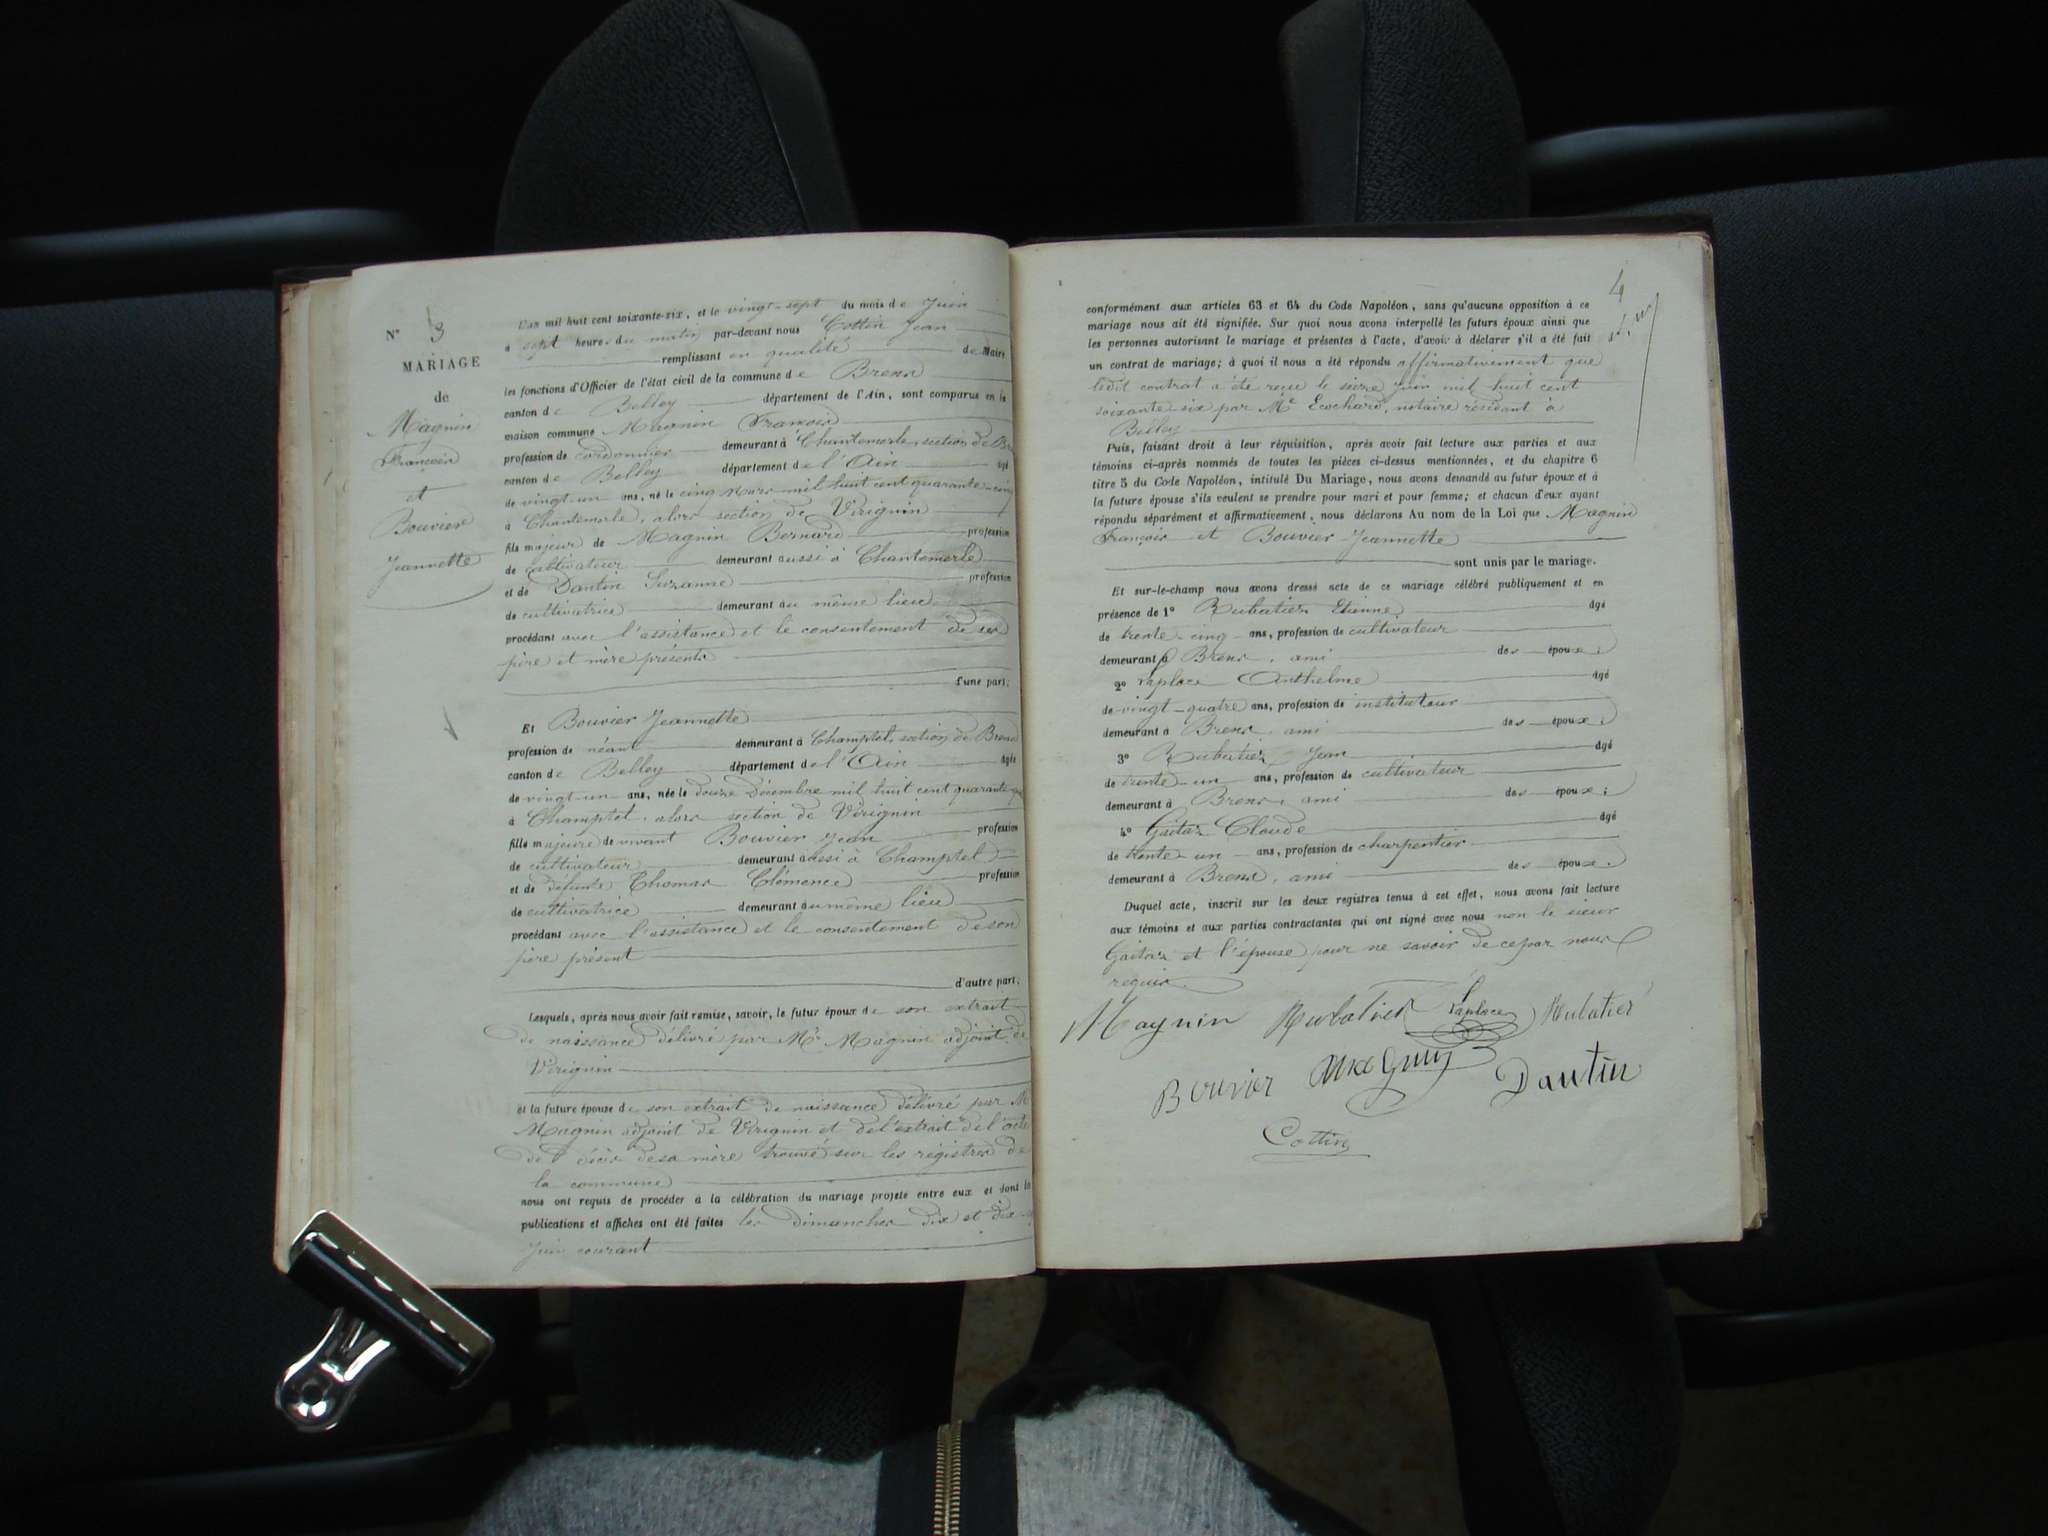 N° 3
MARIAGE
de
Magnin
François
et
Bouvier
Jeannette
L'an mil huit cent soixante-six, et le vingt-sept du mois de Juin
à sept heures du matin par-devant nous Cottin Jean
remplissant en qualité de Maire
les fonctions d'Officier de l'état civil de la commune de Brens
canton de Belley département de l'Ain, sont comparus en la
maison commune Magnin François
profession de cordonnier demeurant à Chantemerle, section de Br
canton de Belley département de l'Ain âgé
de vingt-un ans, né le cinq Mars mil huit cent quarante-cinq
à Chantemerle, alors section de Virignin
fils majeur de Magnin Bernard profession
de cultivateur demeurant aussi à Chantemerle
et de Dantin Suzanne profession
de cultivatrice demeurant au même lieu
procédant avec l'assistance et le consentement de ses
père et mère présents
d'une part;
Et Bouvier Jeannette
profession de néant demeurant à Champtel, section de Brens
canton de Belley département de l'Ain âgée
de vingt-un ans, née le douze Décembre mil huit cent quarante
à Champtel, alors section de Virignin
fille majeure de vivant Bouvier Jean profession
de cultivateur demeurant aussi à Champtel
et de défunte Thomas Clémence profession
de cultivatrice demeurant au même lieu
procédant avec l'assistance et le consentement de son
père présent
d'autre part;
Lesquels, après nous avoir fait remise, savoir, le futur époux de son extrait
de naissance délivré par Mr Magnin adjoint de
Virignin
et la future épouse de son extrait de naissance délivré par M
Magnin adjoint de Virignin et de l'extrait de l'acte
de décès de sa mère trouvé sur les registres de
la commune
nous ont requis de procéder à la célébration du mariage projeté entre eux et dont les
publications et affiches ont été faites les Dimanches dix et dix-
Juin courant
4
conformément aux articles 63 et 64 du Code Napoléon, sans qu'aucune opposition à ce
mariage nous ait été signifiée. Sur quoi nous avons interpellé les futurs époux ainsi que
les personnes autorisant le mariage et présentes à l'acte, d'avoir à déclarer s'il a été fait
un contrat de mariage; à quoi il nous a été répondu affirmativement que
ledit contrat a été reçu le seize Juin mil huit cent
soixante-six par Me Ecochard, notaire résidant à
Belley
Puis, faisant droit à leur réquisition, après avoir fait lecture aux parties et aux
témoins ci-après nommés de toutes les pièces ci-dessus mentionnées, et du chapitre 6
titre 5 du Code Napoléon, intitulé Du Mariage, nous avons demandé au futur époux et à
la future épouse s'ils veulent se prendre pour mari et pour femme; et chacun d'eux ayant
répondu séparément et affirmativement, nous déclarons Au nom de la Loi que Magnin
François et Bouvier Jeannette
sont unis par le mariage.
Et sur-le-champ nous avons dressé acte de ce mariage célébré publiquement et en
présence de 1° Rubatier Etienne âgé
de trente-cinq ans, profession de cultivateur
demeurant à Brens, ami des époux;
2° Laplace Anthelme âgé
de vingt-quatre ans, profession de instituteur
demeurant à Brens, ami des époux;
3° Rubatier Jean âgé
de trente-un ans, profession de cultivateur
demeurant à Brens, ami des époux;
4° Gaitaz Claude âgé
de trente-un ans, profession de charpentier
demeurant à Brens, ami des époux.
Duquel acte, inscrit sur les deux registres tenus à cet effet, nous avons fait lecture
aux témoins et aux parties contractantes qui ont signé avec nous non le sieur
Gaitaz et l'épouse pour ne savoir de ce par nous
requis.
Magnin Rubatier Laplace Rubatier
Bouvier Magnin Dantin
Cottin